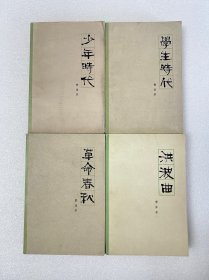 少年時代
學生時代
革命春秋
洪波曲